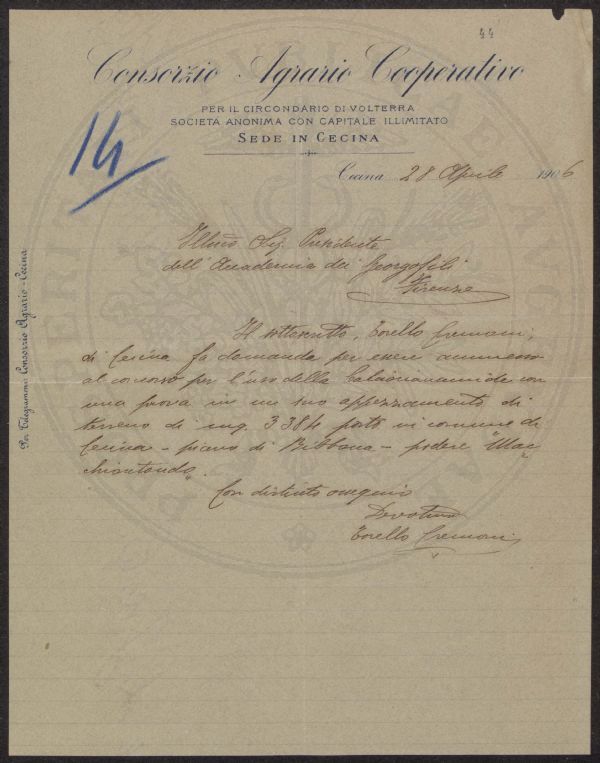 44
Consorzio Agrario Cooperativo
PER IL CIRCONDARIO DI VOLTERRA
SOCIETÀ ANONIMA CON CAPITALE ILLIMITATO
SEDE IN CECINA
14
Cecina 28 Aprile 1906
Illmo Sig. Presidente
dell'Accademia dei Georgofili
Firenze
Per Telegrammi Consorzio Agrario - Cecina
Il sottoscritto, Torello Cremoni,
di Cecina fa domanda per essere ammesso
al concorso per l'uso della Calciocianamide con
una prova in un suo appezzamento di
terreno di mq. 3384 posto in comune di
Cecina - piano di Bibbona - podere "Mac
chiontondo"
Con distinto ossequio
Devotmo
Torello Cremoni